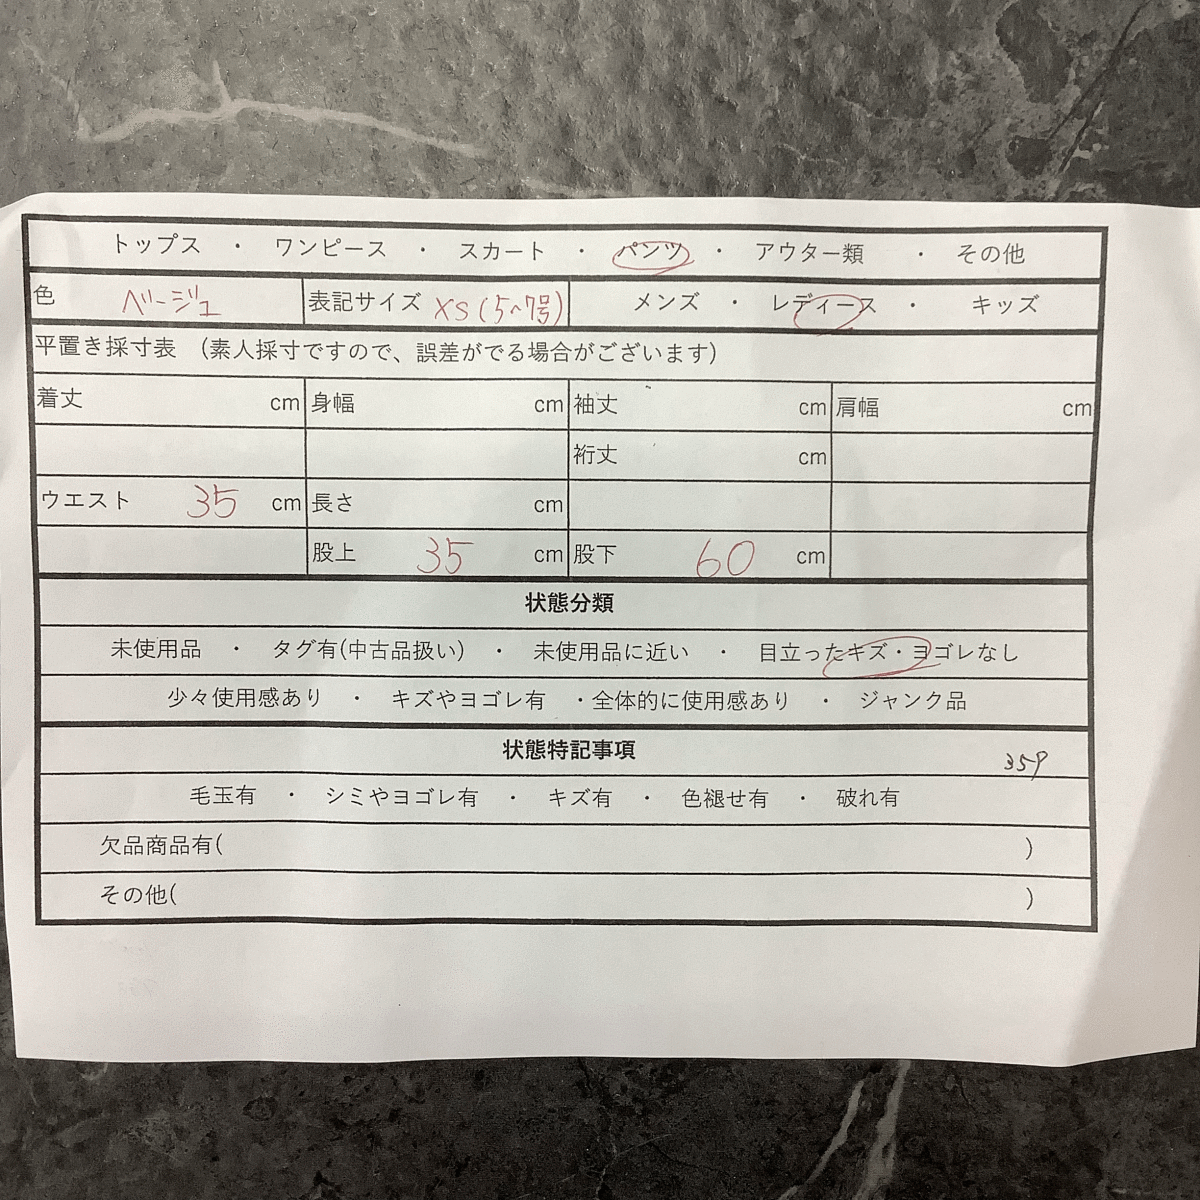 トップス ・ ワンピース ・ スカート ・ パンツ ・ アウター類 ・ その他
色 ベージュ 表記サイズ XS(5~7号) メンズ ・ レディース ・ キッズ
平置き採寸表 (素人採寸ですので、誤差がでる場合がございます)
着丈 cm 身幅 cm 袖丈 cm 肩幅 cm
裄丈 cm
ウエスト 35 cm 長さ cm
股上 35 cm 股下 60 cm
状態分類
未使用品 ・ タグ有(中古品扱い) ・ 未使用品に近い ・ 目立ったキズ・ヨゴレなし
少々使用感あり ・ キズやヨゴレ有 ・全体的に使用感あり ・ ジャンク品
状態特記事項 359
毛玉有 ・ シミやヨゴレ有 ・ キズ有 ・ 色褪せ有 ・ 破れ有
欠品商品有( )
その他( )